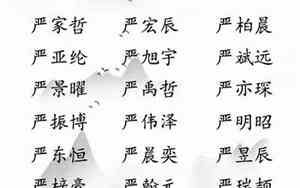 严家哲 严宏辰 严柏晨
严亚纶 严旭宇 严斌远
严景曜 严禹哲 严亦琛
严振博 严伟泽 严明昭
严东恒 严晨奕 严昱辰
严梓豪 严翰元 严瑞顿